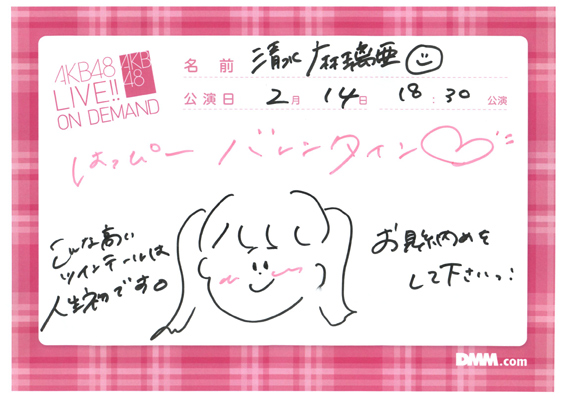 AKB48
LIVE!!
ON DEMAND
AKB
48
名前 清水麻璃亜
公演日 2月 14日 18:30 公演
はっぴー バレンタイン♡
こんな高い
ツインテールは
人生初です。
お見納めを
して下さいっ!
DMM.com